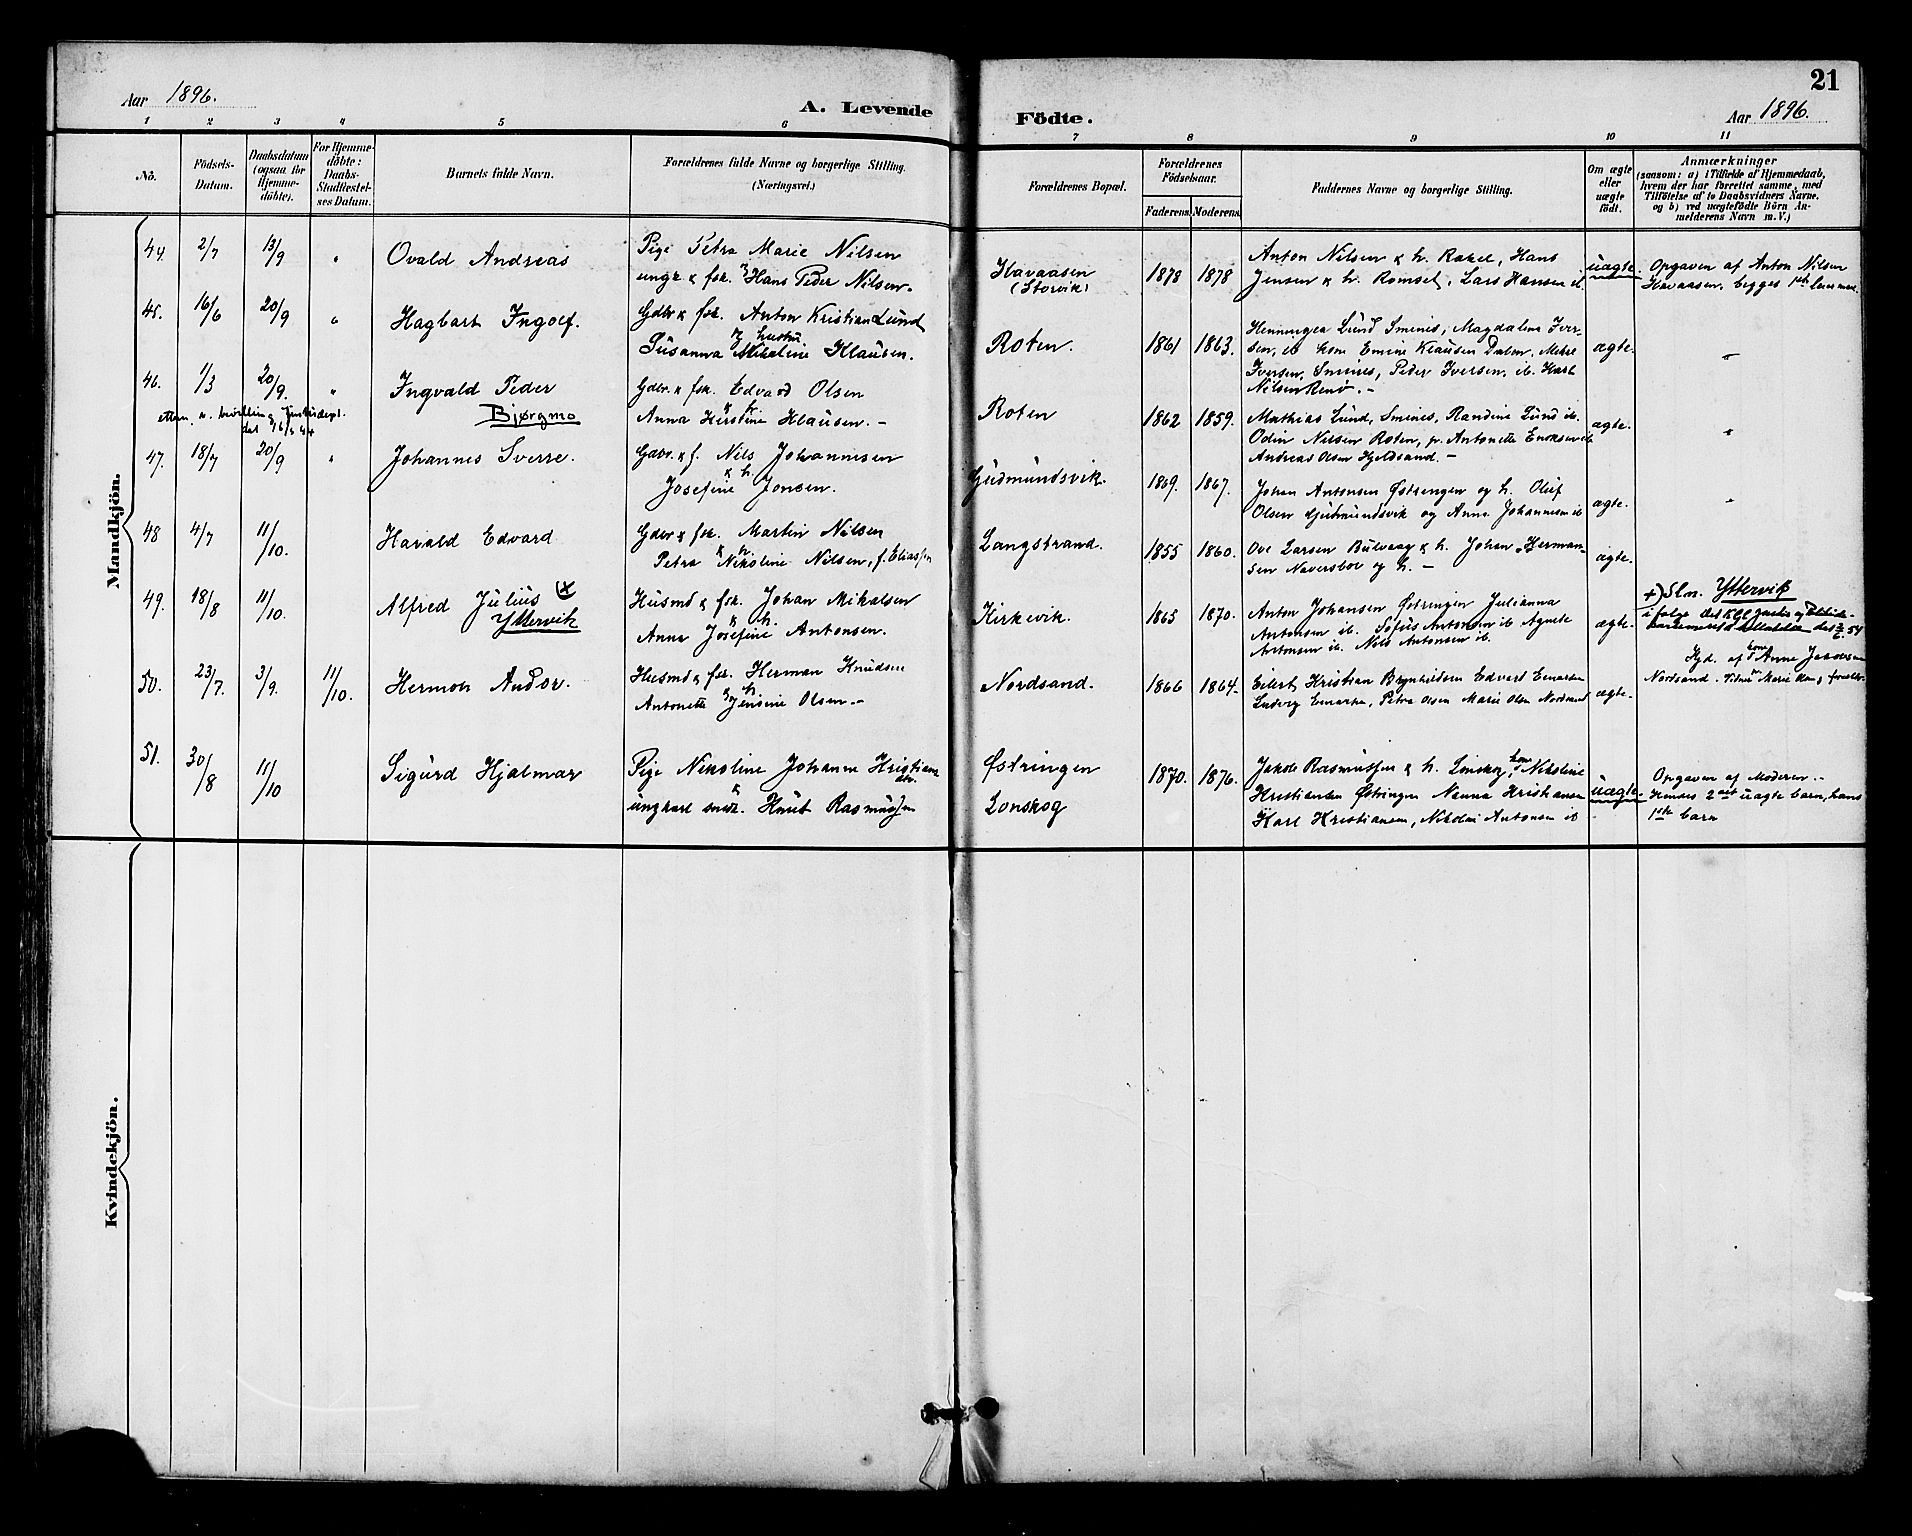 21
Aar 1896.
A. Levende
Födte.
Aar 1896.
1 2 3 4 5 6 7 8 9 10 11
No.
Födsels-
Datum.
Daabsdatum
(ogsaa for
Hjemme-
döbte).
For Hjemme-
döbte:
Daabs-
Stadfæstel-
ses Datum.
Barnets fulde Navn.
Forældrenes fulde Navne og borgerlige Stilling.
(Næringsvei.)
Forældrenes Bopæl.
Forældrenes
Födselsaar.
Faderens. Moderens.
Faddernes Navne og borgerlige Stilling.
Om ægte
eller
uægte
födt.
Anmærkninger
(saasom: a) i Tilfælde af Hjemmedaab,
hvem der har forrettet samme, med
Tilföielse af to Daabsvidners Navne.
og b) ved uægtefödte Börn An-
melderens Navn m.V.)
Mandkjön.
44. 2/7 13/9 " Ovald Andreas
Pige Petra Marie Nilsen
ungk. & fsk. Hans Peder Nilsen.
Havaasen
(Storvik)
1878 1878
Anton Nilsen & h. Rakel, Hans
Jensen & h. Romset, Lars Hansen ib.
uægte.
Opgaven af Anton Nilsen
Havaasen, begges 1ste
45. 16/6 20/9 " Hagbart Ingolf.
Gdbr & fsk. Anton Kristian Lund
og hustru
Susanna Nikoline Klausen.
Roten.
1861 1863.
Henningea Lund Smines, Magdalena Iver-
sen, ib kone Emine Klausen Dalen, Mekel
Iversen, Smines, Peder Iversen, ib. Karl
Nilsen Renø. -
ægte.
"
46. 1/3 20/9. " Ingvald Peder
Bjørgmo
Gdbr. & fsk. Edvard Olsen
& h.
Anna Kirstine Klausen. -
Roten
1862 1859.
Mathias Lund, Smines, Randine Lund ib.
Odin Nilsen Roten, p. Antonette Enoksen ib
Andreas Olsen Hjeldsand. -
ægte.
"
47. 18/7 20/9 " Johannes Sverre.
Gdbr. & f. Nils Johannesen
& h.
Josefine Jonsen.
Gudmundsvik.
1869. 1867.
Johan Antonsen Østringen og h. Oluf
Olsen Gudmundsvik og Anna Johannesen ib
ægte.
"
48 4/7 11/10. Harald Edvard
Gdbr & fsk. Martin Nilsen
& h.
Petra Nikoline Nilsen, f. Eliassen
Langstrand.
1855 1860.
Ove Larsen Bulvaag & h. Johan Herman-
sen Naversboe og h. -
ægte.
49. 18/8 11/10. Alfred Julius (+
Yttervik
Husmd & fsk. Johan Mikalsen
& h.
Anna Josefine Antonsen.
Kirkevik.
1865 1870.
Anton Johansen Østringen Julianna
Antonsen ib. Sofus Antonsen ib Agnete
Antonsen ib. Nils Antonsen ib.
ægte.
+) Sln. Yttervik
i følge det Kgl Justis og Politi-
50. 23/7. 3/9. 11/10. Hermon Andor.
Husmd & fsk. Herman Knudsen
og h.
Antonette Jensine Olsen. -
Nordsand.
1866 1864.
Eilert Kristian Brynhildsen Edvard Einarsen
Ludvig Einarsen, Petra Olsen Marie Olsen Nordsand
ægte.
Hjd. af kone Anne Jakobsen
Nordsand.
51. 30/8 11/10 Sigurd Hjalmar
Pige Nikoline Johanne Kristian-
sen
&
ungkarl smed. Knut Rasmussen
Østringen
Lonskog
1870. 1876.
Jakob Rasmussen & h. Lonskog, kone Nikoline
Kristiansen Østringen Nanna Kristiansen
Karl Kristiansen, Nikolai Antonsen ib
uægte.
Opgaven af Moderen. -
Hendes 2det uægte barn, hans
1ste barn
Kvindekjön.